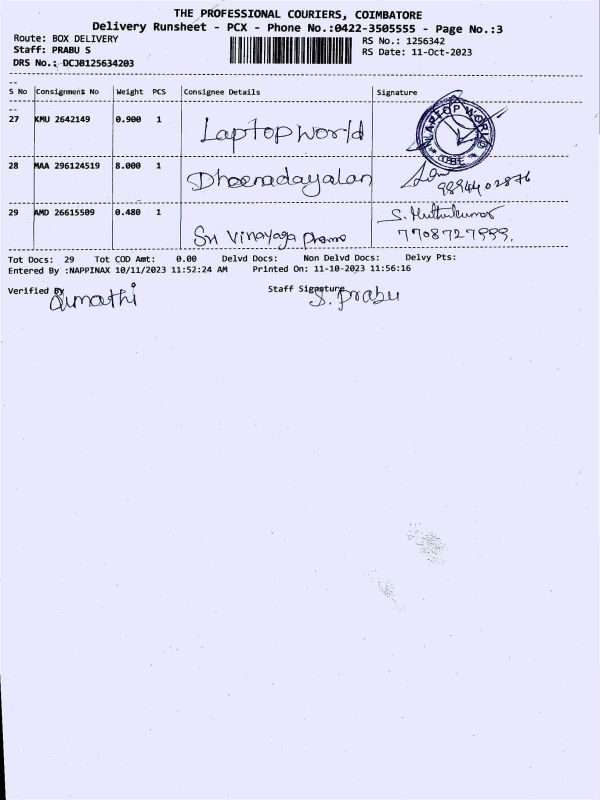 THE PROFESSIONAL COURIERS, COIMBATORE
Delivery Runsheet - PCX - Phone No.:0422-3505555 - Page No.:3
Route: BOX DELIVERY RS No.: 1256342
Staff: PRABU S RS Date: 11-Oct-2023
DRS No.: DCJB125634203
S No Consignmens No Weight PCS Consignee Details Signature
27 KMU 2642149 0.900 1 Laptop world LAPTOP WORLD CBE
28 MAA 296124519 8.000 1 Dheenadayalan 9894402876
29 AMD 26615509 0.480 1 Sri Vinayaga Promo S. Muthukumar
7708727999.
Tot Docs: 29 Tot COD Amt: 0.00 Delvd Docs: Non Delvd Docs: Delvy Pts:
Entered By :NAPPINAX 10/11/2023 11:52:24 AM Printed On: 11-10-2023 11:56:16
Verified By Sumathi Staff Signature S. Prabu